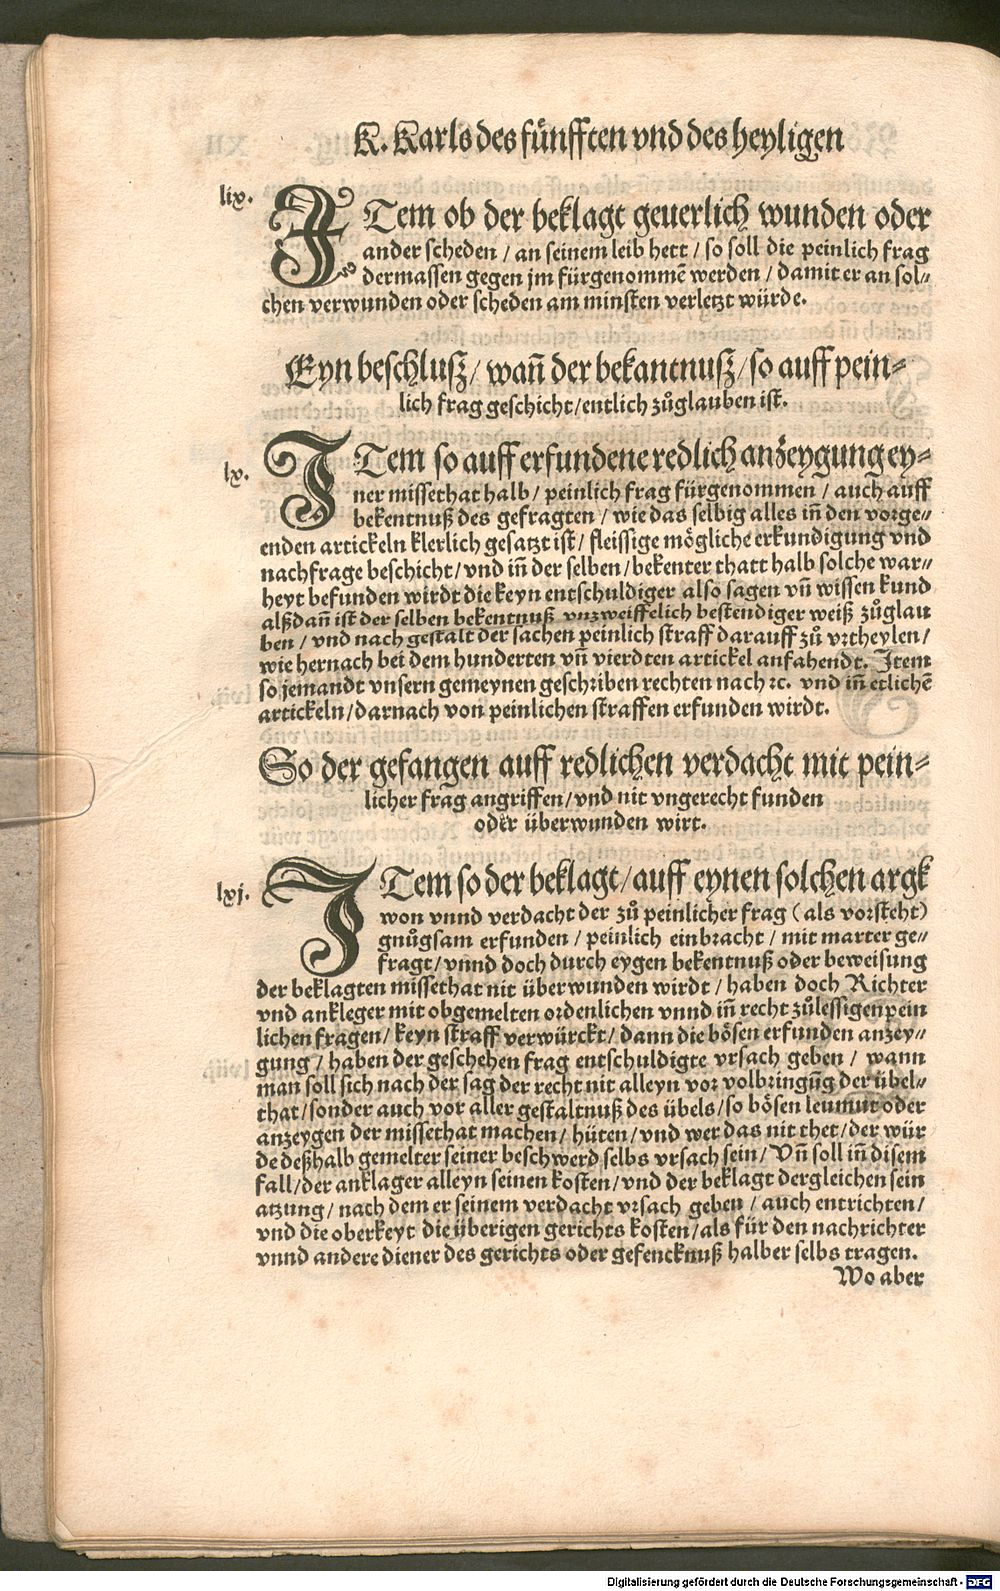 K. Karls des fünfften vnd des heyligen
lix.
ITem ob der beklagt geuerlich wunden oder
ander scheden / an seinem leib hett / so soll die peinlich frag
dermassen gegen jm fürgenommē werden / damit er an sol⸗
chen verwunden oder scheden am minsten verletzt würde.
Eyn beschlusz / wañ der bekantnusz / so auff pein⸗
lich frag geschicht / entlich zůglauben ist.
lx.
ITem so auff erfundene redlich anzeygung ey⸗
ner missethat halb / peinlich frag fürgenommen / auch auff
bekentnuß des gefragten / wie das selbig alles iñ den vorge⸗
enden artickeln klerlich gesatzt ist / fleissige mögliche erkundigung vnd
nachfrage beschicht / vnd iñ der selben / bekenter thatt halb solche war⸗
heyt befunden wirdt die keyn entschuldiger also sagen vñ wissen kund
alßdañ ist der selben bekentnuß vnzweiffelich bestendiger weiß zůglau
ben / vnd nach gestalt der sachen peinlich straff darauff zů vrtheylen /
wie hernach bei dem hunderten vñ vierdten artickel anfahendt. Item
so jemandt vnsern gemeynen geschriben rechten nach ꝛc. vnd iñ etlichē
artickeln / darnach von peinlichen straffen erfunden wirdt.
So der gefangen auff redlichen verdacht mit pein⸗
licher frag angriffen / vnd nit vngerecht funden
oder überwunden wirt.
lxj.
ITem so der beklagt / auff eynen solchen argk
won vnnd verdacht der zů peinlicher frag (als vorsteht)
gnůgsam erfunden / peinlich einbracht / mit marter ge⸗
fragt / vnnd doch durch eygen bekentnuß oder beweisung
der beklagten missethat nit überwunden wirdt / haben doch Richter
vnd ankleger mit obgemelten ordenlichen vnnd iñ recht zůlessigen pein
lichen fragen / keyn straff verwürckt / dann die bösen erfunden anzey⸗
gung / haben der geschehen frag entschuldigte vrsach geben / wann
man soll sich nach der sag der recht nit alleyn vor volbringũg der übel⸗
that / sonder auch vor aller gestaltnuß des übels / so bösen leumut oder
anzeygen der missethat machen / hüten / vnd wer das nit thet / der wür
de deßhalb gemelter seiner beschwerd selbs vrsach sein / Vñ soll iñ disem
fall / der anklager alleyn seinen kosten / vnd der beklagt dergleichen sein
atzung / nach dem er seinem verdacht vrsach geben / auch entrichten /
vnd die oberkeyt die überigen gerichts kosten / als für den nachrichter
vnnd andere diener des gerichts oder gefencknuß halber selbs tragen.
Wo aber
Digitalisierung gefördert durch die Deutsche Forschungsgemeinschaft - DFG